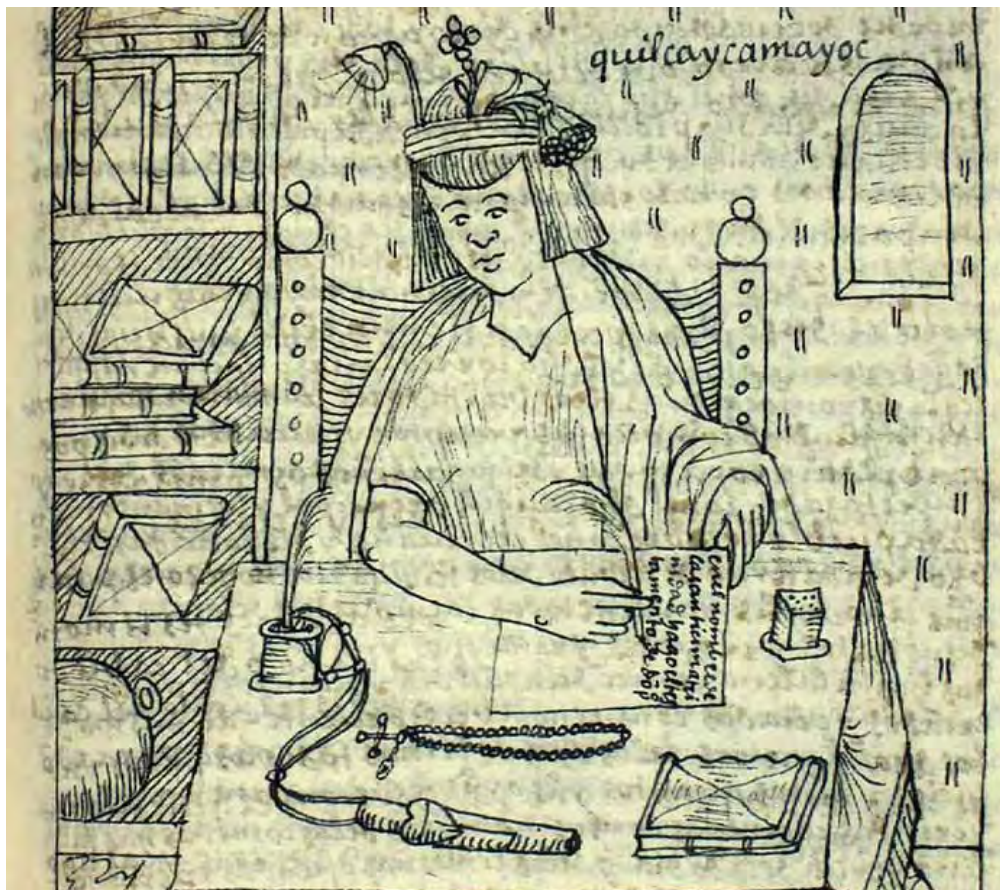 quilcaycamayoc
en el nombre de
la santicima tri
nidad hago el tes
tamento de dõ